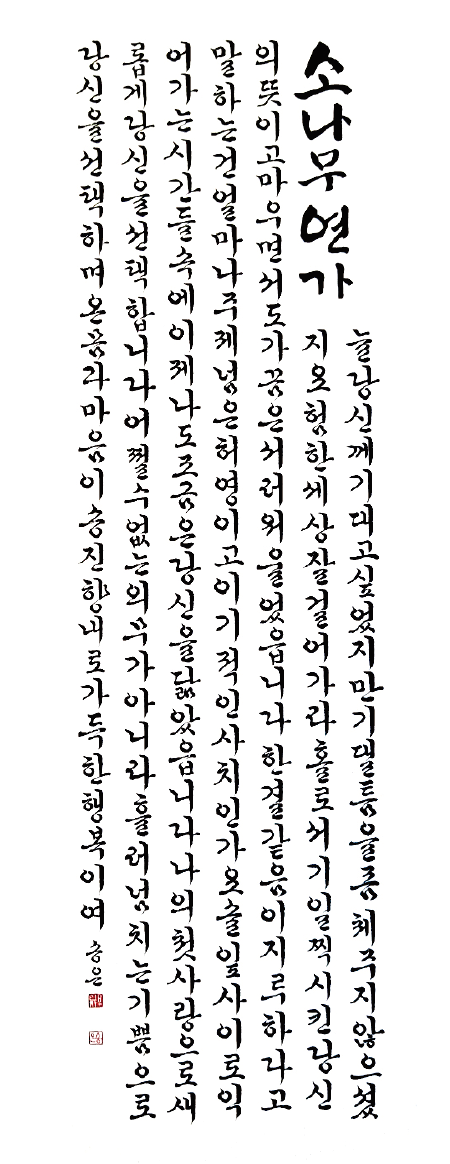 소나무 연가
늘당신께기대고싶었지만기댈틈을좀체주지않으셨
지요험한세상잘걸어가라홀로서기일찍시킨당신
의뜻이고마우면서도가끔은서러워울었읍니다한결같음이지루하다고
말하는건얼마나주제넘은허영이고이기적인사치인가요솔잎사이로익
어가는시간들속에이제나도조금은당신을닮았읍니다나의첫사랑으로새
롭게당신을선택합니다어쩔수없는의무가아니라흘러넘치는기쁨으로
당신을선택하며온몸과마음이송진향내로가득한행복이여 송은